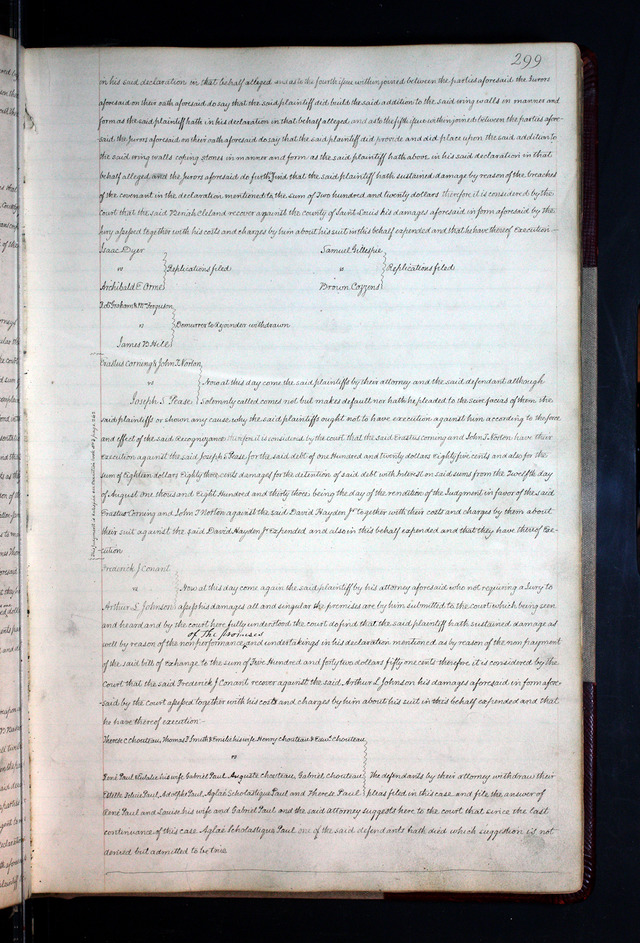 299
in his said declaration in that behalf alleged and as to the fourth issue within joined between the parties aforesaid the Jurors
aforesaid on their oath aforesaid do say that the said plaintiff did build the said addition to the said wing walls in manner and
form as the said plaintiff hath in his declaration in that behalf alleged and as to the fifth issue within joined between the parties afore-
said the Jurors aforesaid on their oath aforesaid do say that the said plaintiff did provide and did place upon the said addition to
the said wing walls coping stones in manner and form as the said plaintiff hath above in his said declaration in that
behalf alleged and the Jurors aforesaid do further find that the said plaintiff hath sustained damage by reason of the breaches
of the covenant in the declaration mentioned to the sum of Two hundred and twenty dollars therefore it is considered by the
court that the said Beriah Cleland recover against the county of Saint Louis his damages aforesaid in form aforesaid by the
Jury assessed together with his costs and charges by him about his suit in this behalf expended and that he have thereof execution—
Isaac Dyer
vs Replications filed
Archibald E Orme
Samuel Gillespie
vs Replications filed
Brown Cozzens
Graham & Mc Ferguson
vs Demurrer to rejoinder withdrawn
James B Hill
Erastus Corning & John T. Norton
vs Now at this day come the said plaintiffs by their attorney and the said defendant although
Joseph S Pease solemnly called comes not but makes default nor hath he pleaded to the scire facias of them the
said plaintiffs or shown any cause why the said plaintiffs ought not to have execution against him according to the force
and effect of the said Recognizance therefore it is considered by the court that the said Erastus corning and John T. Norton have their
execution against the said Joseph S Pease, for the said debt of one Hundred and twenty dollars Eighty five cents and also for the
sum of Eighteen dollars Eighty three cents damages for the detention of said debt with Interest on said sums from the Twelfth day
of August one thousand Eight Hundred and thirty three being the day of the rendition of the Judgment in favor of the said
Erastus Corning and John T Norton against the said David Hayden Jr together with their costs and charges by them about
their suit against the said David Hayden Jr expended and also in this behalf expended and that they have thereof Exe-
cution
Frederick J Conant
vs Now at this day come again the said plaintiff by his attorney aforesaid who not requiring a Jury to
Arthur L Johnson assess his damages all and singular the premises are by him submitted to the court which being seen
and heard and by the court here fully understood the court do find that the said plaintiff hath sustained damage as
of The promises
well by reason of the nonperformance and undertakings in his declaration mentioned as by reason of the non payment
of the said bill of exchange to the sum of Two Hundred and forty two dollars fifty one cents therefore it is considered by the
Court that the said Frederick J Conant recover against the said Arthur L Johnson his damages aforesaid in form afore-
said by the Court assessed together with his costs and charges by him about his suit in this behalf expended and that
he have thereof execution—
Therese C Chouteau, Thomas F Smith & Emilie his wife, Henry Chouteau & Edwd Chouteau
vs
René Paul & Eulalie his wife Gabriel Paul, Auguste Chouteau, Gabriel Chouteau The defendants by their attorney withdraw their
Estelle Julie Paul, Adolphe Paul, Aglaé Scholastique Paul and Therese Paul pleas filed in this case and file the answer of
René Paul and Louise his wife and Gabriel Paul and the said attorney suggests here to the court that since the last
continuance of this case Aglaé Scholastique Paul one of the said defendants hath died which suggestion is not
denied but admitted to be true